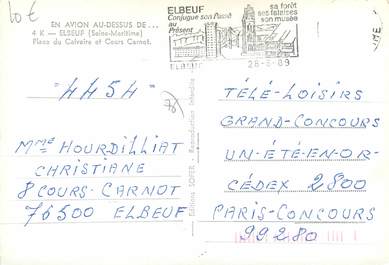 10€
EN AVION AU-DESSUS DE...
4 K — ELBEUF (Seine-Maritime)
Place du Calvaire et Cours Carnot.
ELBEUF
Conjugue son Passé
au
Présent
sa forêt
ses falaises
son musée
ELBEUF
28-8-89
-4454-
76
MME HOURDILLIAT
CHRISTIANE
8 COURS-CARNOT
76500 ELBEUF
Editions SOFER - Reproduction Interdite
TÉLÉ-LOISIRS
GRAND-CONCOURS
UN-ÉTÉ-EN-OR-
CÉDEX 2800
PARIS-CONCOURS
99280